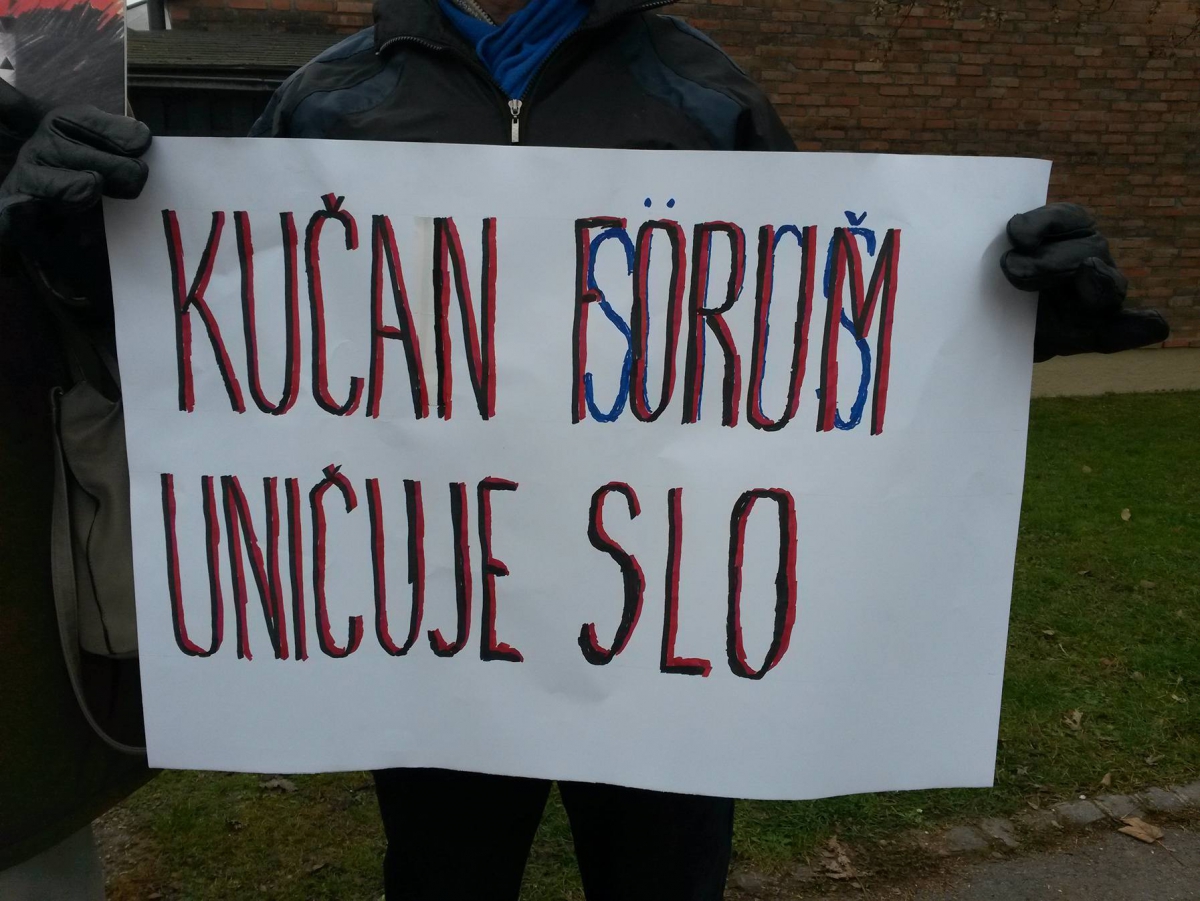 KUČAN FORUM SÖROŠ
UNIČUJE SLO